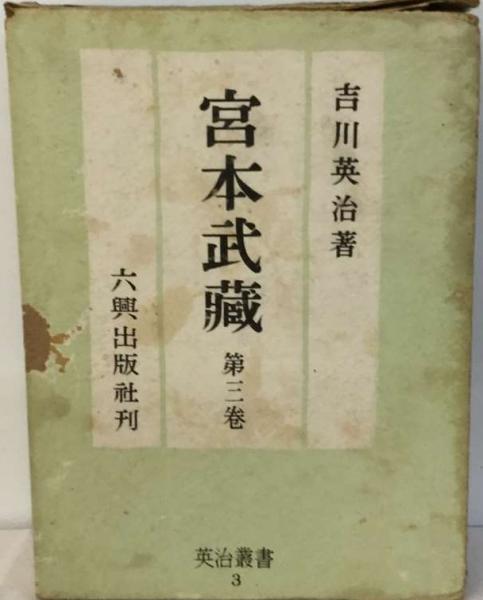 吉川英治著
宮本武藏
第三卷
六興出版社刊
英治叢書
3